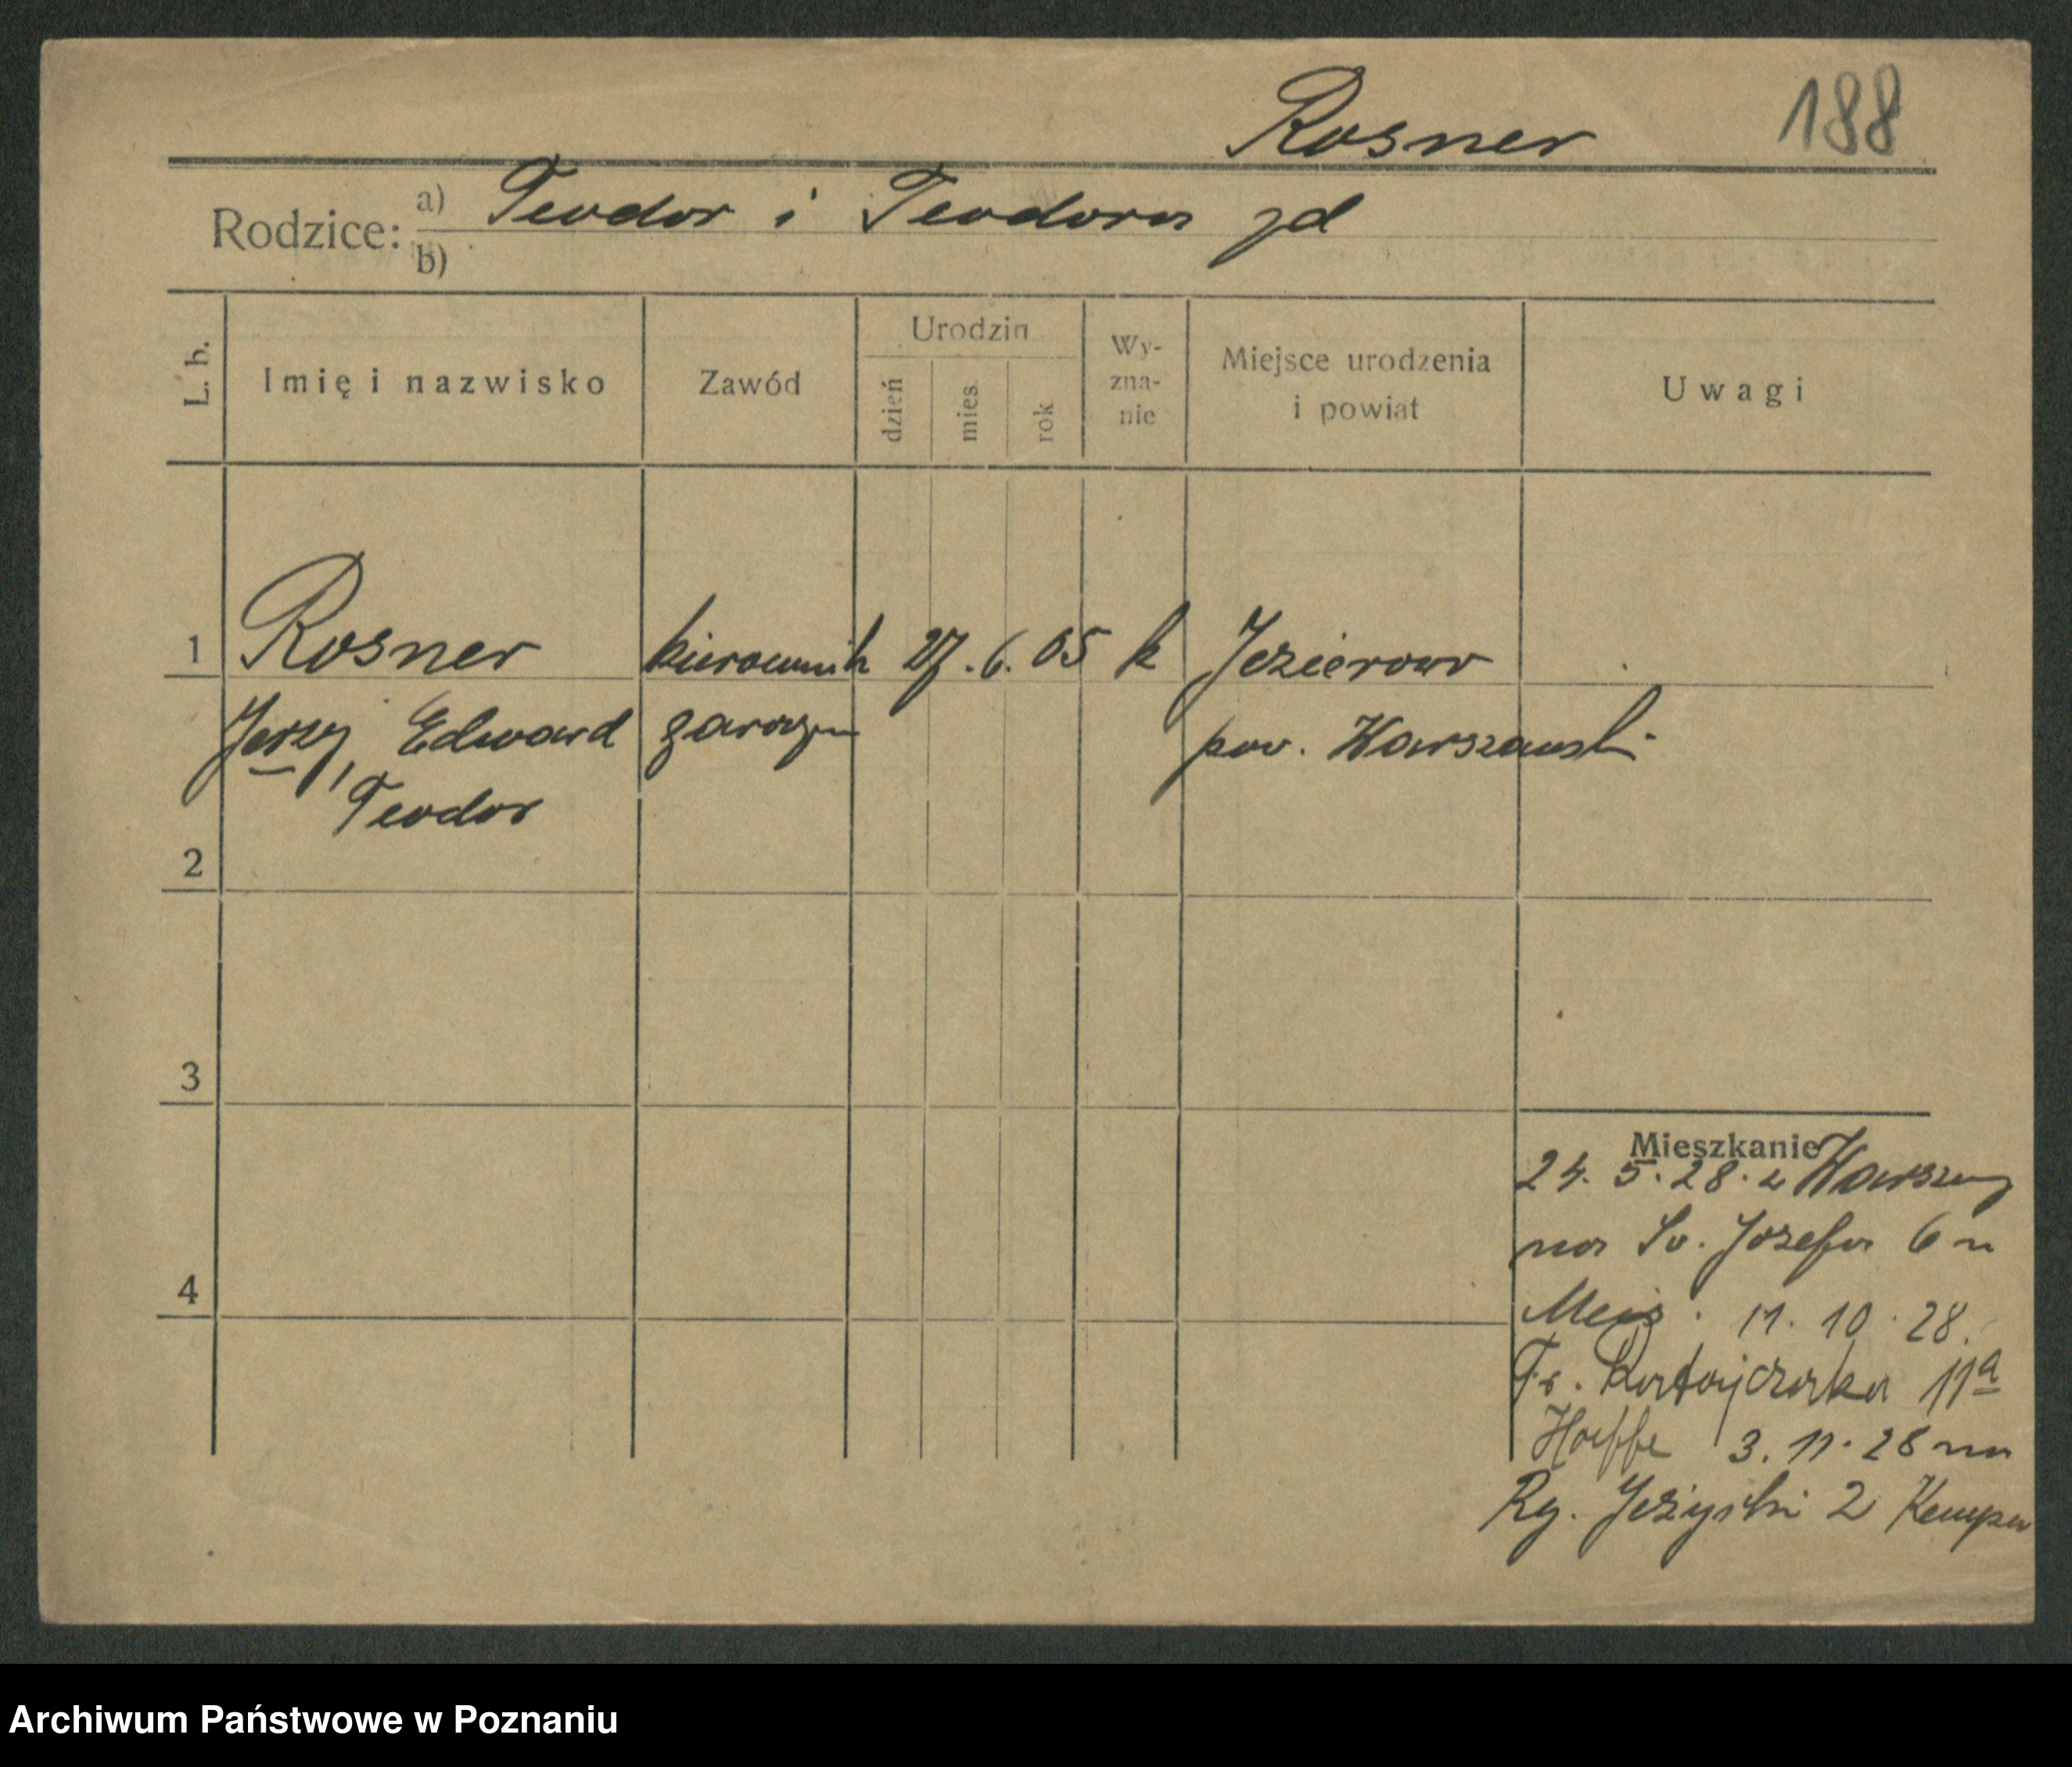 Rosner 188
Rodzice: a) Teodor i Teodora jd
b)
L. b. Imię i nazwisko Zawód Urodzin dzień mies. rok Wy-zna-nie Miejsce urodzenia i powiat Uwagi
1 Rosner kierownik 27. 6. 05 k Jezierowo
Jerzy, Edward pow. Warszawski
Teodor
2
3
Mieszkanie
24. 5. 28. z Warszawy
na Św. Józefa 6
4
11. 10. 28.
Fr. Ratajczaka 11a
3. 11. 28 na
Ry. Jeżycki 2
Archiwum Państwowe w Poznaniu